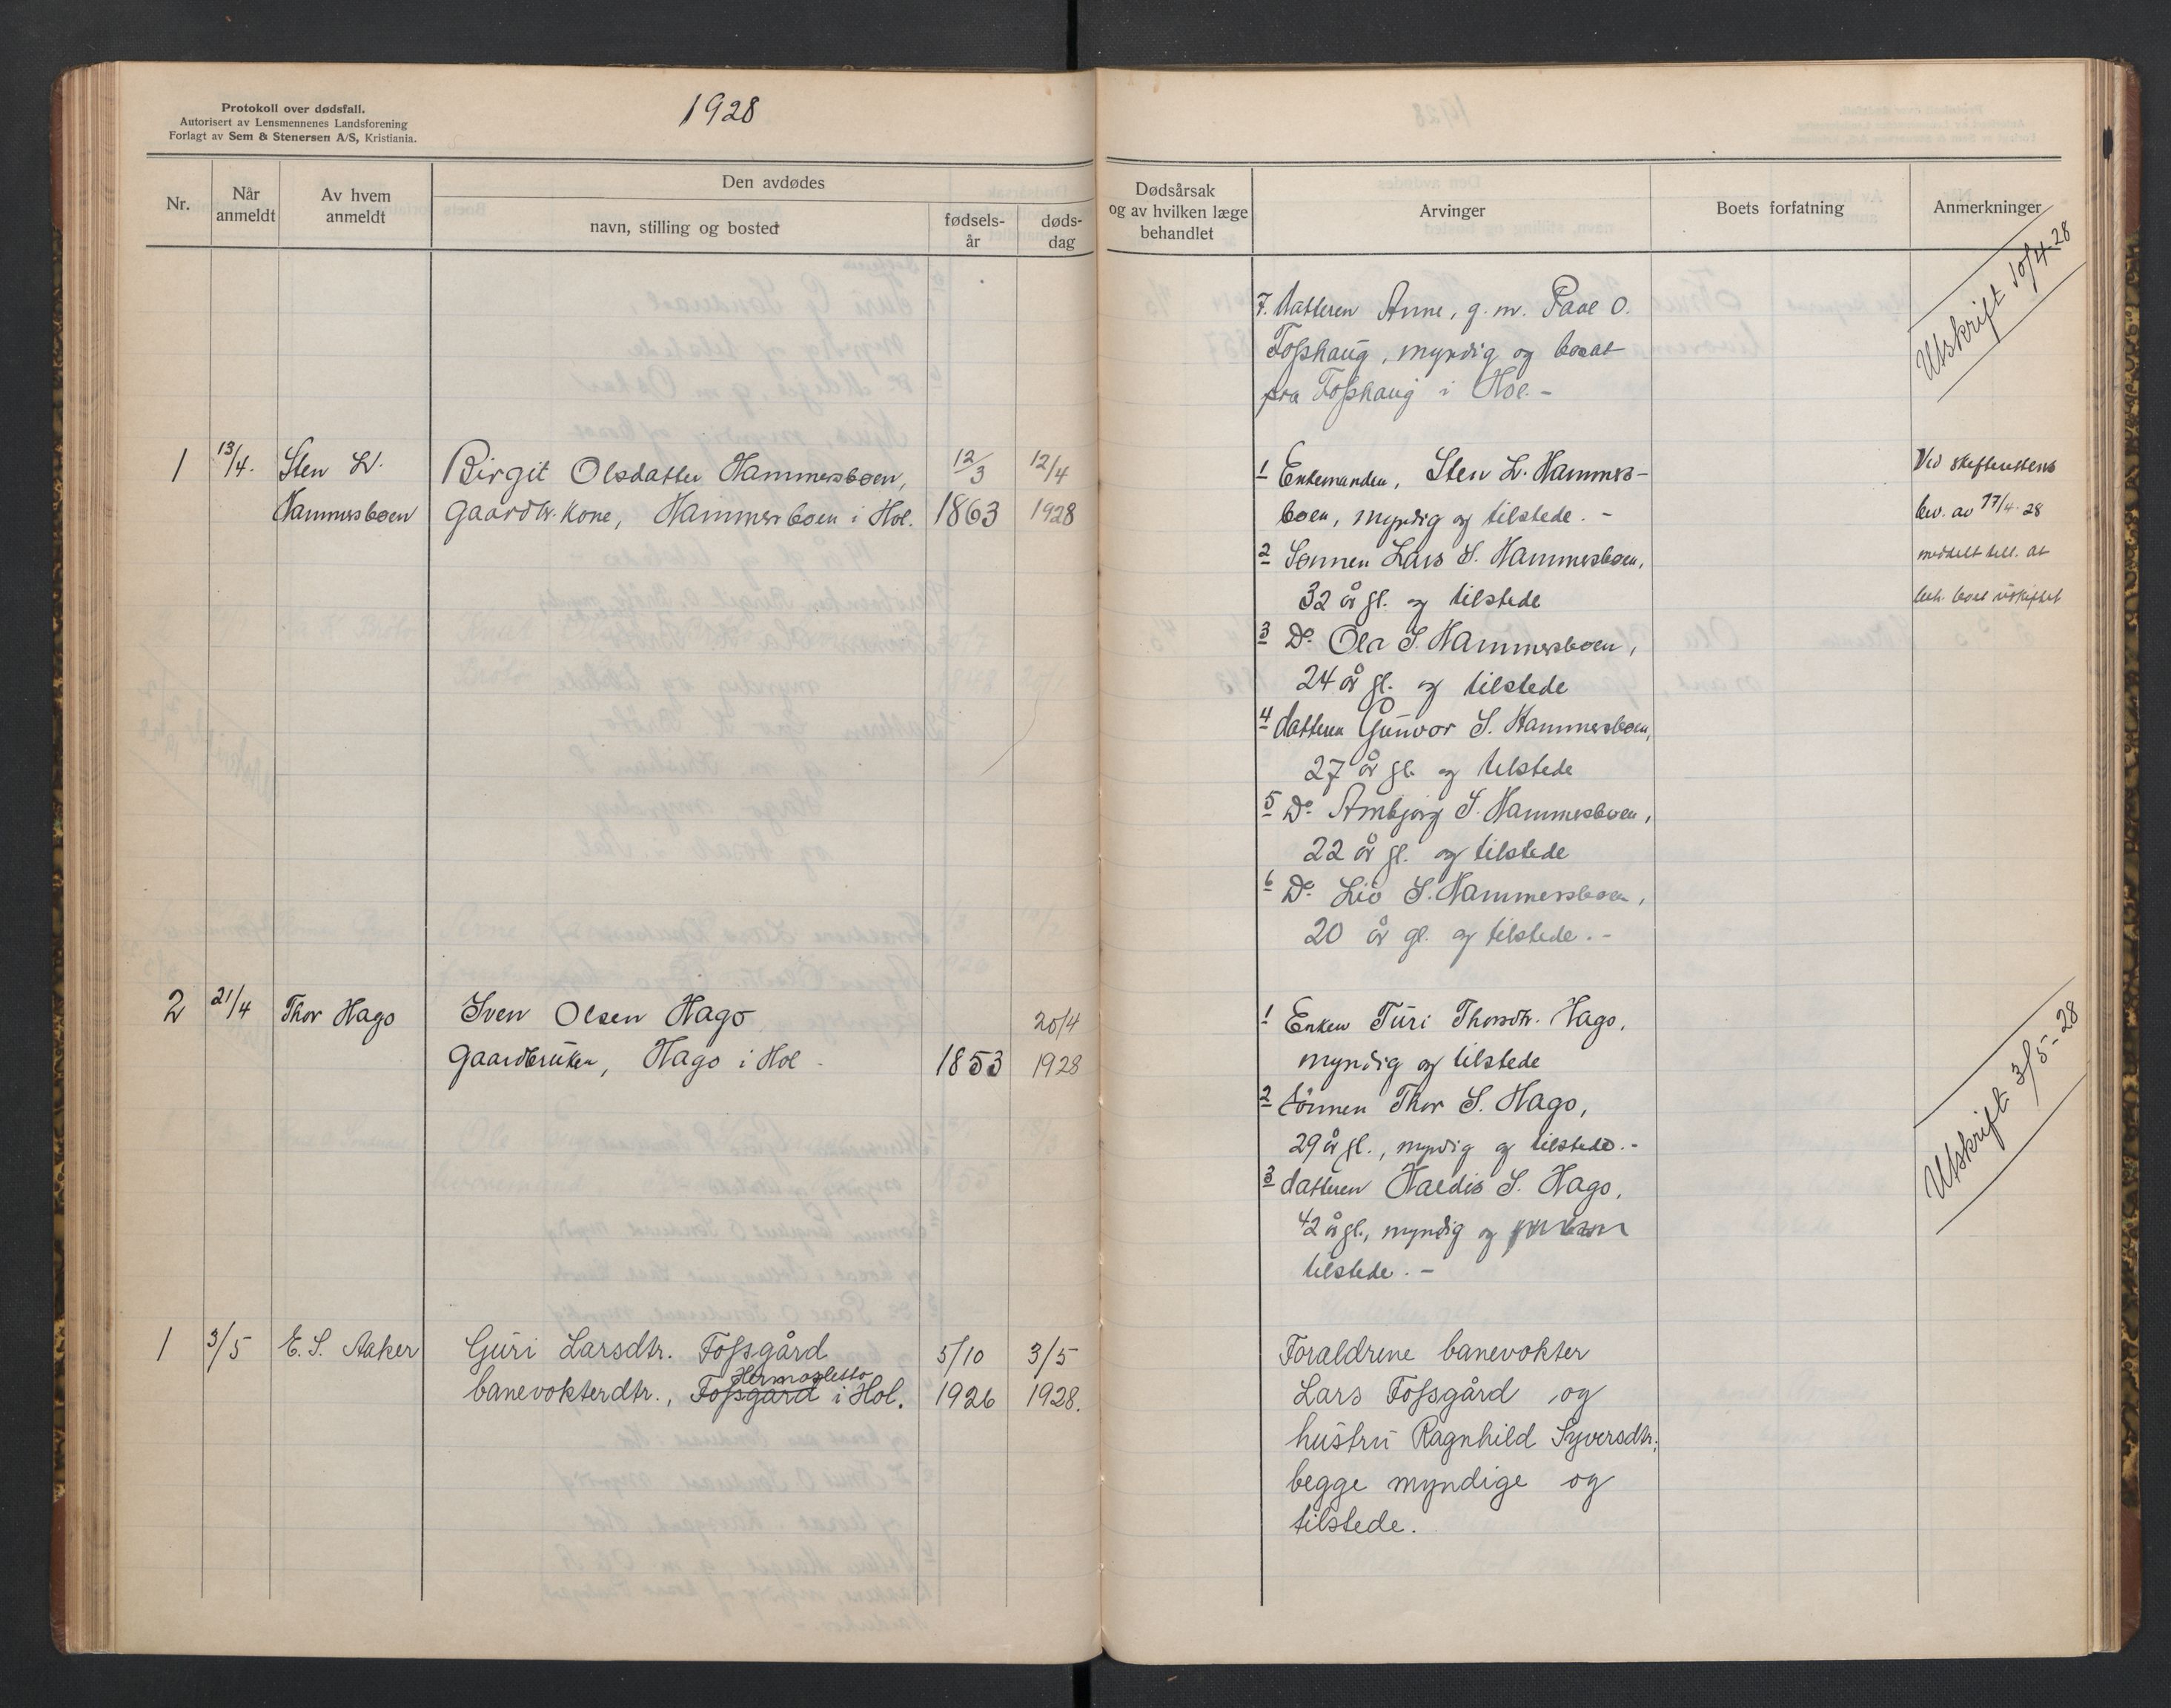 Protokoll over dødsfall.
Autorisert av Lensmennenes Landsforening
Forlagt av Sem & Stenersen A/S, Kristiania.
1928
Nr.
Når anmeldt
Av hvem anmeldt
Den avdødes
navn, stilling og bosted
fødsels-
år
døds-
dag
Dødsårsak
og av hvilken læge
behandlet
Arvinger
Boets forfatning
Anmerkninger
7. datteren Anne, g. m. Paal O.
Fosshaug, myndig og bosat
paa Fosshaug i Hol. -
Utskrift 10/4-28
1 13/4. Sten L. Birgit Olsdatter Hammersboen, 12/3 12/4
Hammersboen Gaardbr. kone, Hammersboen i Hol. 1863 1928
1 Enkemanden, Sten L. Hammers-
boen, myndig og tilstede. -
2 Sønnen Lars S. Hammersboen,
32 år gl. og tilstede
3 Do Ola S. Hammersboen,
24 år gl. og tilstede
4 datteren Gunvor S. Hammersboen,
27 år gl. og tilstede
5 Do Ambjørg S. Hammersboen,
22 år gl. og tilstede
6 Do Liv S. Hammersboen,
20 år gl. og tilstede. -
Ved skifterettens
bev. av 17/4-28
meddelt till. at
beh. boet uskiftet
2 21/4 Thor Hago Sven Olsen Hago 20/4
Gaardbruker, Hago i Hol - 1853 1928
1 Enken Turi Thorsdtr. Hago,
myndig og tilstede
2 sønnen Thor S. Hago,
29 år gl., myndig og tilstede. -
3 datteren Haldis S. Hago,
42 år gl., myndig og
tilstede. -
Utskrift 3/5-28
1 3/5 E. S. Aaker Guri Larsdtr. Fossgård 5/10 3/5
Hermosletto
banevokterdtr., Fossgård i Hol. 1926 1928.
Foraldrene banevokter
Lars Fossgård og
hustru Ragnhild Syversdtr,
begge myndige og
tilstede.